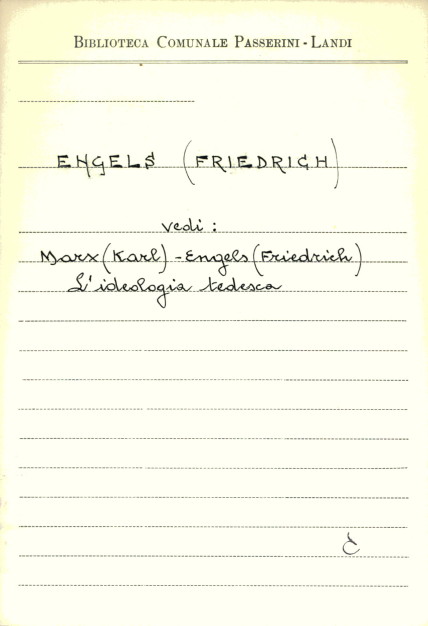 BIBLIOTECA COMUNALE PASSERINI - LANDI
ENGELS (FRIEDRICH)
vedi :
Marx (Karl) - Engels (Friedrich)
L'ideologia tedesca